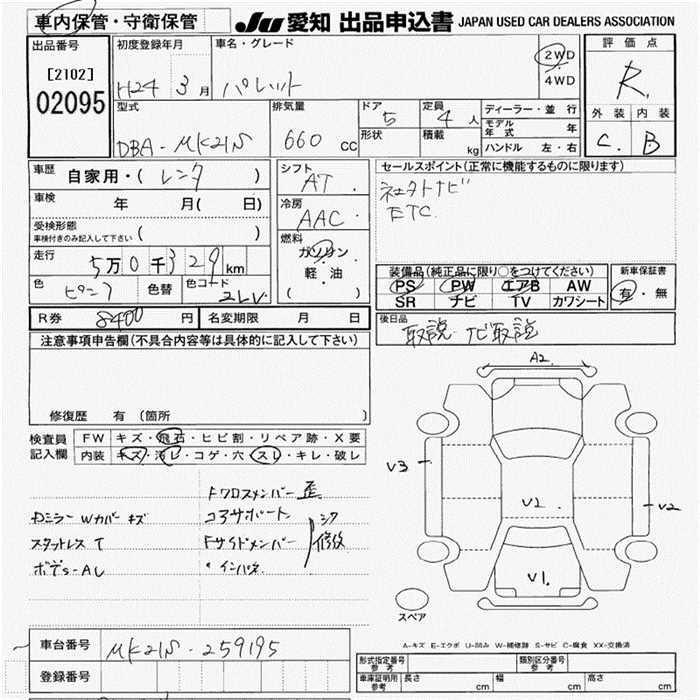 車内保管・守衛保管 JU 愛知 出品申込書 JAPAN USED CAR DEALERS ASSOCIATION
出品番号 初度登録年月 車名・グレード 評価点
[2102] H24 3月 パレット 2WD R
02095 4WD
外装 内装
型式 排気量 ドア 5 定員 4人 ディーラー・並行 C. B
DBA-MK21S 660cc 形状 積載 kg モデル年式 年
ハンドル 左・右
車歴 自家用・(レンタ) シフト AT セールスポイント(正常に機能するものに限ります)
車検 年 月( 日) 冷房 AAC ETC
受検形態 ( )
車検付きのみ記入して下さい
燃料 ガソリン
走行 5万0千329km 軽・油 装備品(純正品に限り〇をつけてください) 新車保証書
色 色替 色コード ZLV ( ) PS PW エアB AW 有・無
SR ナビ TV カワシート
R券 8400円 名変期限 月 日 後日品
取説 ナビ取説
注意事項申告欄(不具合内容等は具体的に記入して下さい)
A2
修復歴 有(箇所
検査員 FW キズ・飛石・ヒビ割・リペア跡・X要
記入欄 内装 キズ・汚レ・コゲ・穴・スレ・キレ・破レ
V3
V2
U2
Fクロスメンバー 歪
ドアミラーWカバー キズ コアサポート
スタットレス T Fサイドメンバー 修復
インパネ
V1
スペア
A-キズ E-エクボ U-凹み W-補修跡 S-サビ C-腐食 XX-交換済
車台番号 MK21S-259195
登録番号
形式指定番号 参考 類別区分番号 参考
車庫証明用 参考 長さ cm 幅 cm 高さ cm